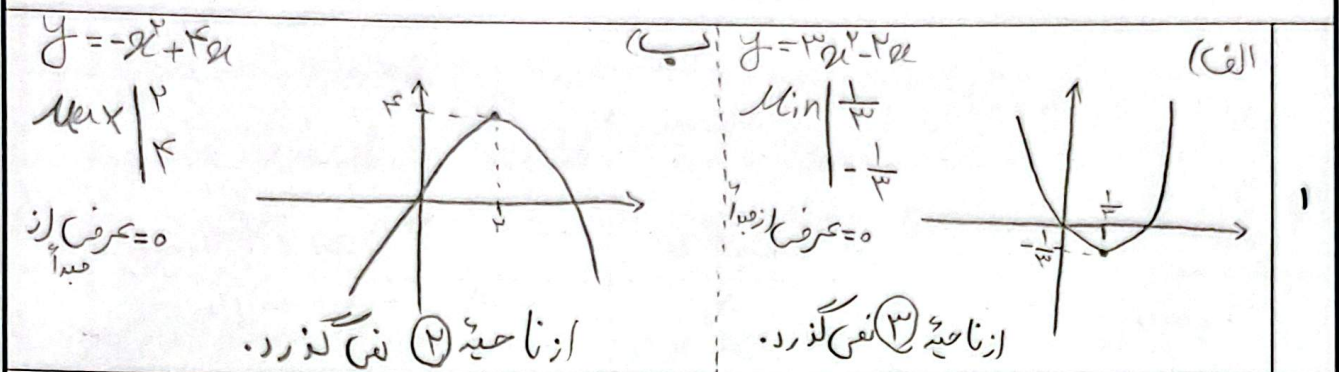 ۱
الف)
y = ۳x² - ۲x
Min | ۱/۳
-۱/۳
عرض از مبدأ = ۰
۱/۳
-۱/۳
از ناحیهٔ ۳ نمی گذرد.
ب)
y = -x² + ۴x
Max | ۲
۴
عرض از مبدأ = ۰
۴
۲
از ناحیهٔ ۲ نمی گذرد.